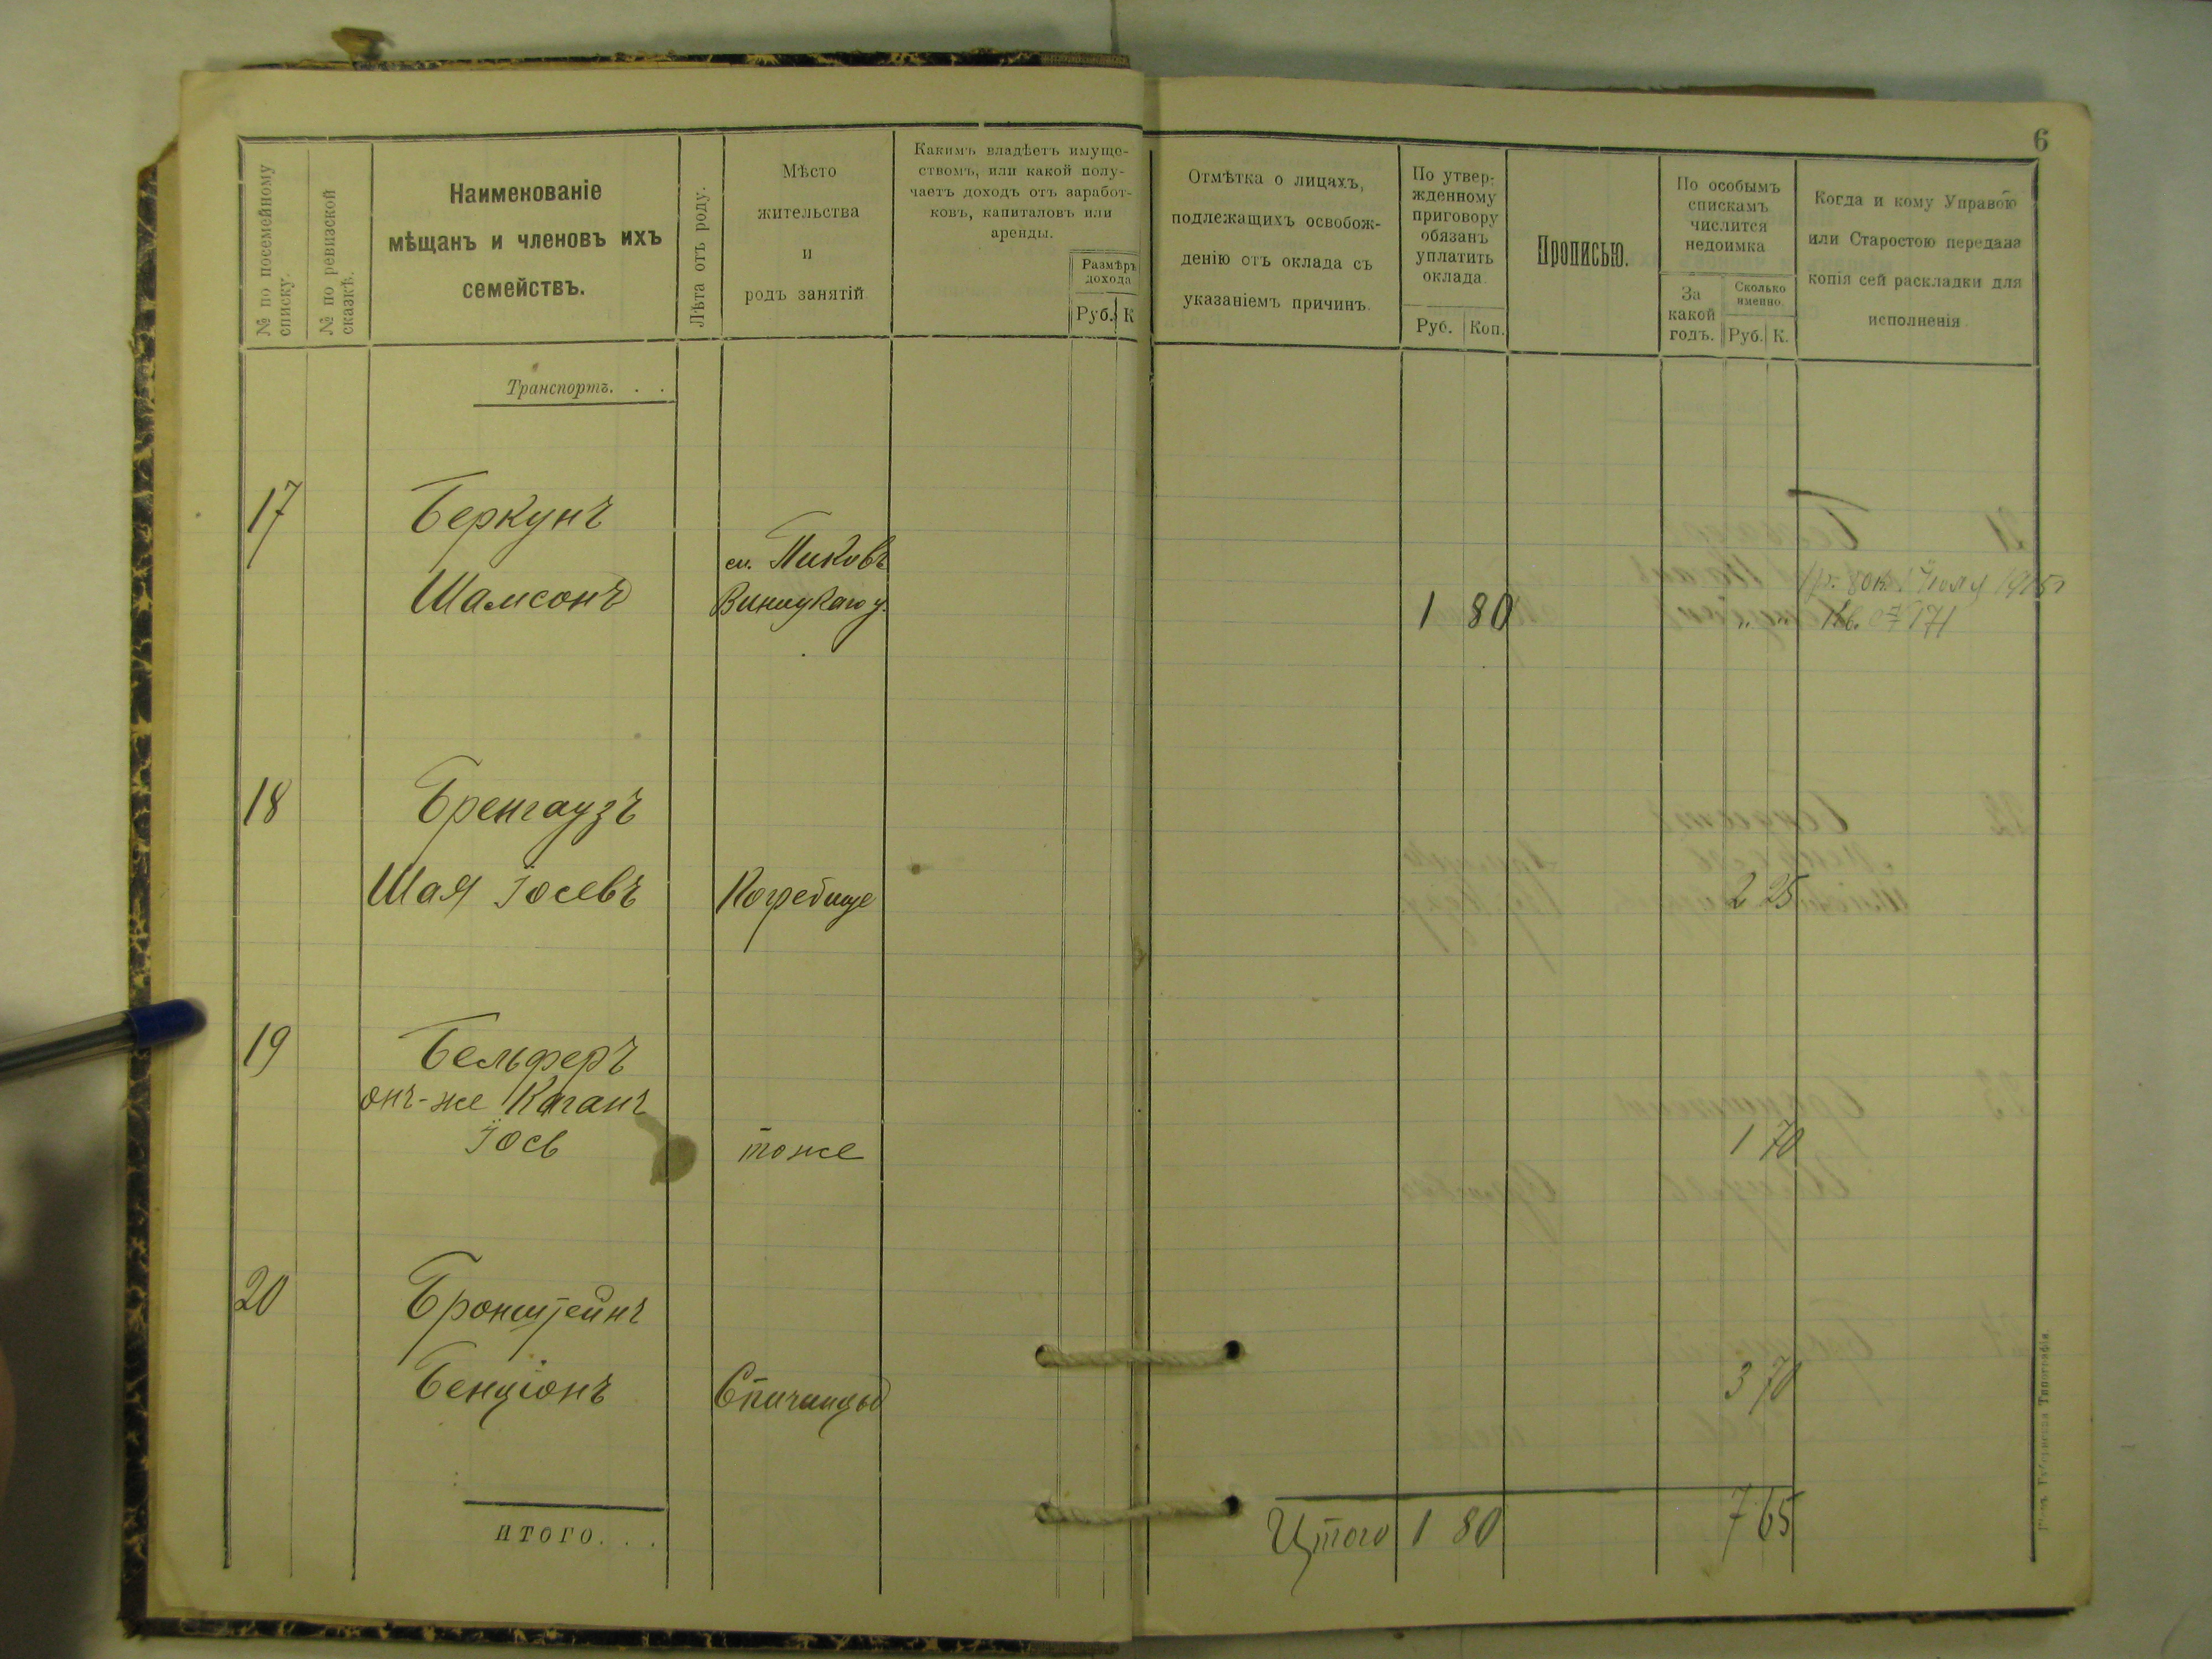 6
№ по посемейному
списку.
№ по ревизской
сказкѣ.
Наименованіе
мѣщанъ и членовъ ихъ
семействъ.
Лѣта отъ роду.
Мѣсто
жительства
и
родъ занятій
Какимъ владѣетъ имуще-
ствомъ, или какой полу-
чаетъ доходъ отъ заработ-
ковъ, капиталовъ или
аренды.
Размѣръ
дохода
Руб. К
Отмѣтка о лицахъ,
подлежащихъ освобож-
денію отъ оклада съ
указаніемъ причинъ.
По утвер-
жденному
приговору
обязанъ
уплатить
оклада.
Руб. Коп.
Прописью.
По особымъ
спискамъ
числится
недоимка
За
какой
годъ.
Сколько
именно.
Руб. К.
Когда и кому Управою
или Старостою передана
копія сей раскладки для
исполненія
Транспортъ. . .
17 Беркунъ
м. Пиковъ
Шамсонъ Виницкаго у. 1 80
1 р. 80 к. 1 Іюля 1915 г
Кв. № 171
18 Бренгаузъ
Шая Іосевъ Погребище 2 25
19 Бельферъ
онъ-же Каганъ
Іось тоже 1 70
20 Бронштейнъ
Бенціонъ Спичинцы 3 70
ИТОГО. . .
Итого 1 80 7 65